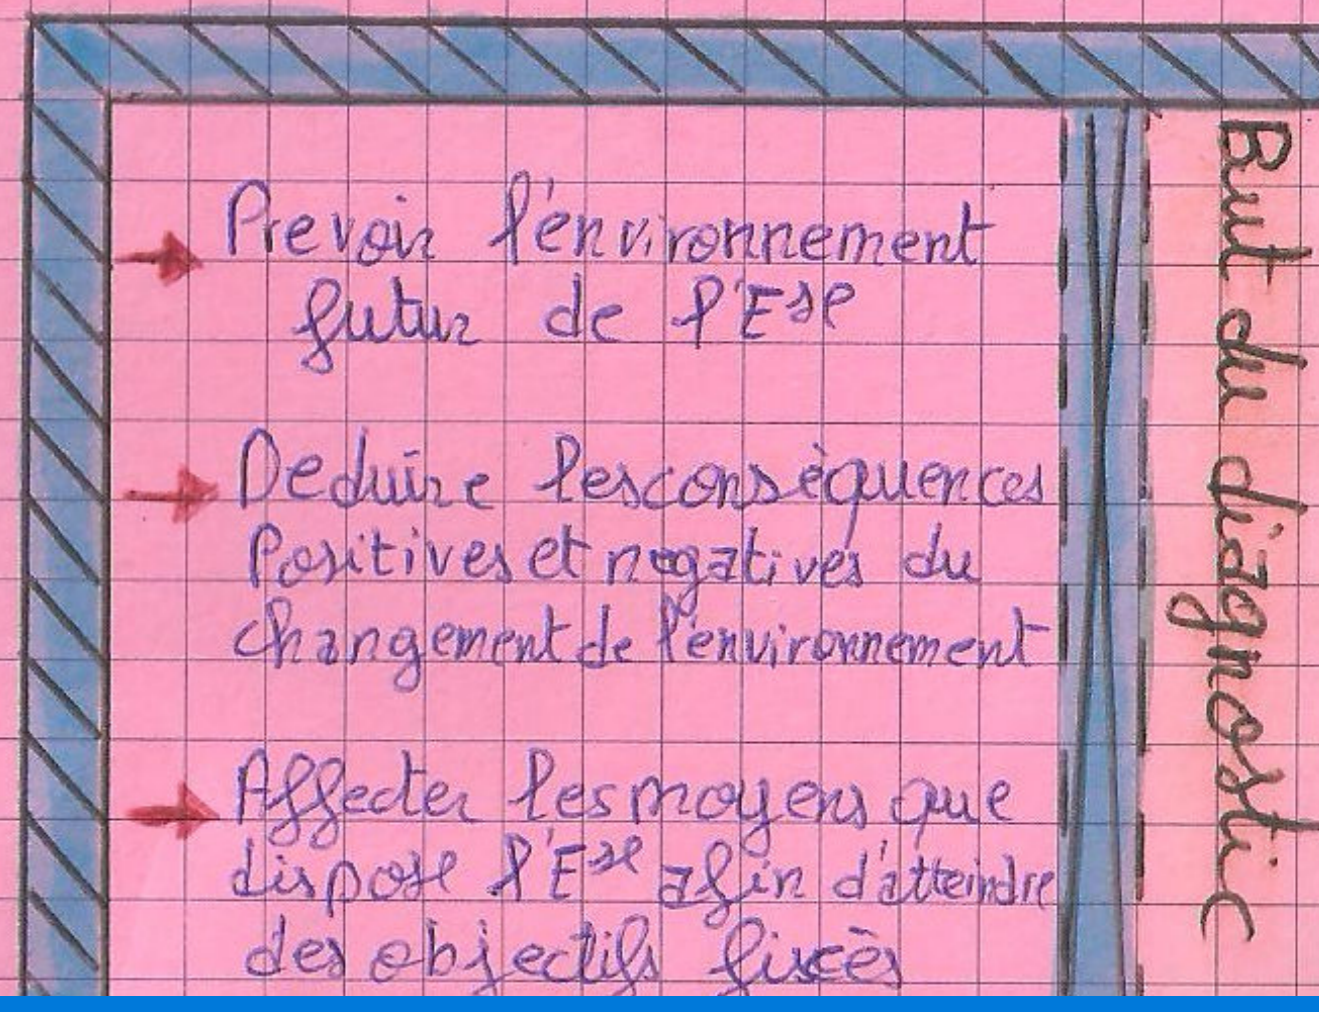 But du diagnostic
Prevoir l'énvironnement
futur de l'Ese
Deduire les consèquences
Positives et negatives du
changement de l'environnement
Affecter les moyens que
dispose l'Ese afin d'atteindre
des objectifs fixcès